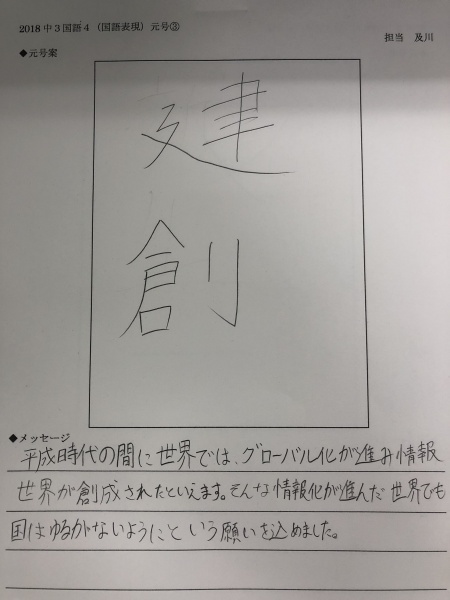 2018 中3国語4（国語表現）元号③
担当　及川
◆元号案
建
創
◆メッセージ
平成時代の間に世界では、グローバル化が進み情報
世界が創成されたといえます。そんな情報化が進んだ世界でも
国はゆるがないようにという願いを込めました。